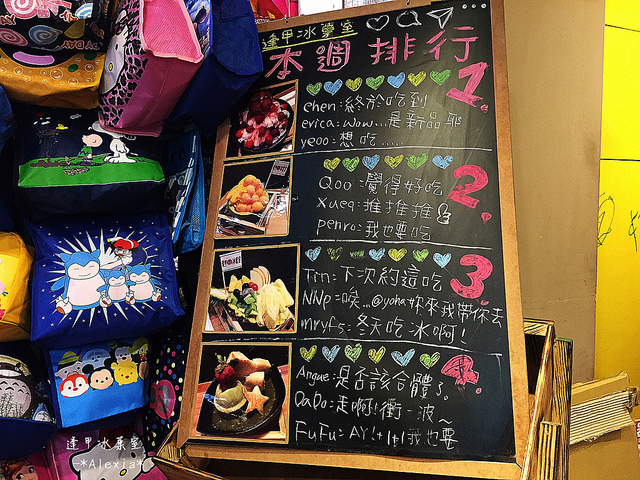 逢甲冰菓室
本週排行
1.
chen:終於吃到
erica:wow...是新品耶
yeoo:想吃....
2.
Qoo:覺得好吃
Xueq:推推推
penro:我也要吃
3.
Tin:下次約這吃
NiNp:唉..@yoha妳來我帶你去
mryfs:冬天吃冰啊!
4.
Angue:是否該合體了。
DaDo:走啊!衝一波~
FuFu:AY!+1+1我也要
逢甲冰菓室
*Alexia*